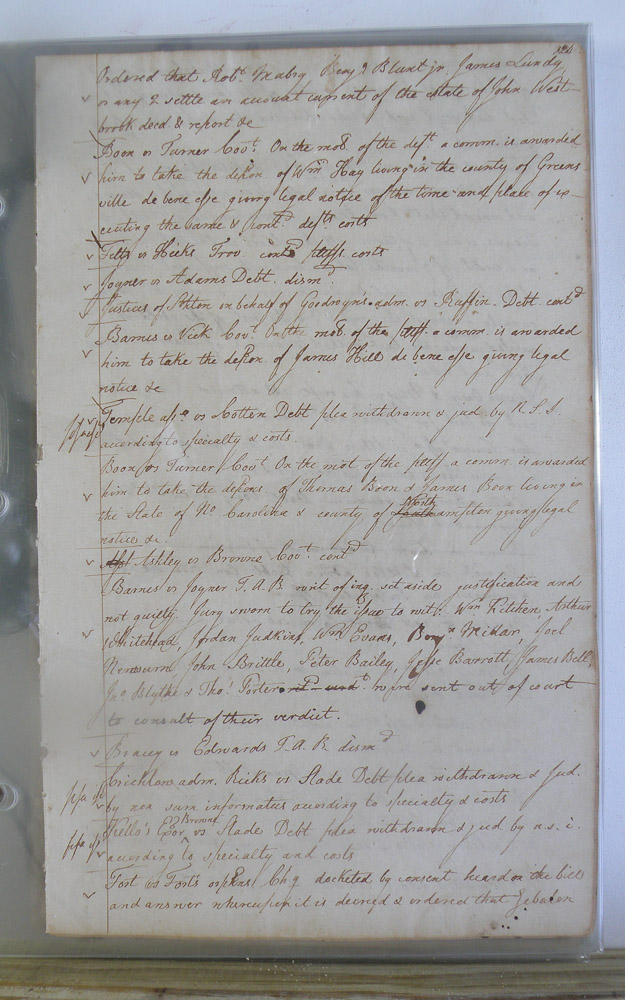 Ordered that Robt. Mabry Benjn Blunt jr. James Lundy
or any 2 settle an account current of the estate of John West-
brook decd. & report &c
Boon vs Turner Covt. On the mot. of the deft. a comm. is awarded
him to take the depon of Wm Hay living in the county of Greens-
ville de bene esse giving legal notice of the time and place of ex-
ecuting the same & contd. defts costs
vs Hicks Trov contd pltffs costs
Joyner vs Adams Debt. dismd
Justices of Shton on behalf of Goodwyn's adm. vs Ruffin. Debt. contd
Barnes vs Vick Covt. On the mot. of the pltff. a comm. is awarded
him to take the depon of James Hill de bene esse giving legal
notice &c
Temple asse. vs Cotten Debt plea withdrawn & jud. by R.S.S.
according to specialty & costs.
Boon vs Turner Covt. On the mot of the pltff. a comm. is awarded
him to take the depons. of Thomas Boon & James Boon living in
the State of No. Carolina & county of North
ampton giving legal
notice &c.
Ashley vs Browne Covt. contd
Barnes vs Joyner T.A.B. writ of inq. set aside justification and
not guilty. Jury sworn to try the issue to wit: Wm Kitchen, Arthur
Whitehead, Jordan Judkins, Wm Evans, Benjn Millar, Joel
Newsum John Brittle, Peter Bailey, Jesse Barrott, James Bell,
Jno Blythe & Thos. Porter were sent out of court
to consult of their verdict.
Bracey vs Edwards T.A.B. dismd
Crichlow adm. Ricks vs Slade Debt plea withdrawn & jud.
by non sum informatus according to specialty & costs
Browne
Kello's Exor vs Slade Debt plea withdrawn & jud by n.s.i.
according to specialty and costs
Fort vs Fort's orphans Chy docketed by consent heard on the bill
and answer whereupon it is decreed & ordered that